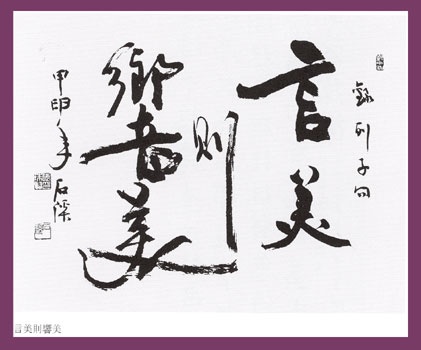 錄列子句
言美
則
響美
甲申年石深
言美則響美